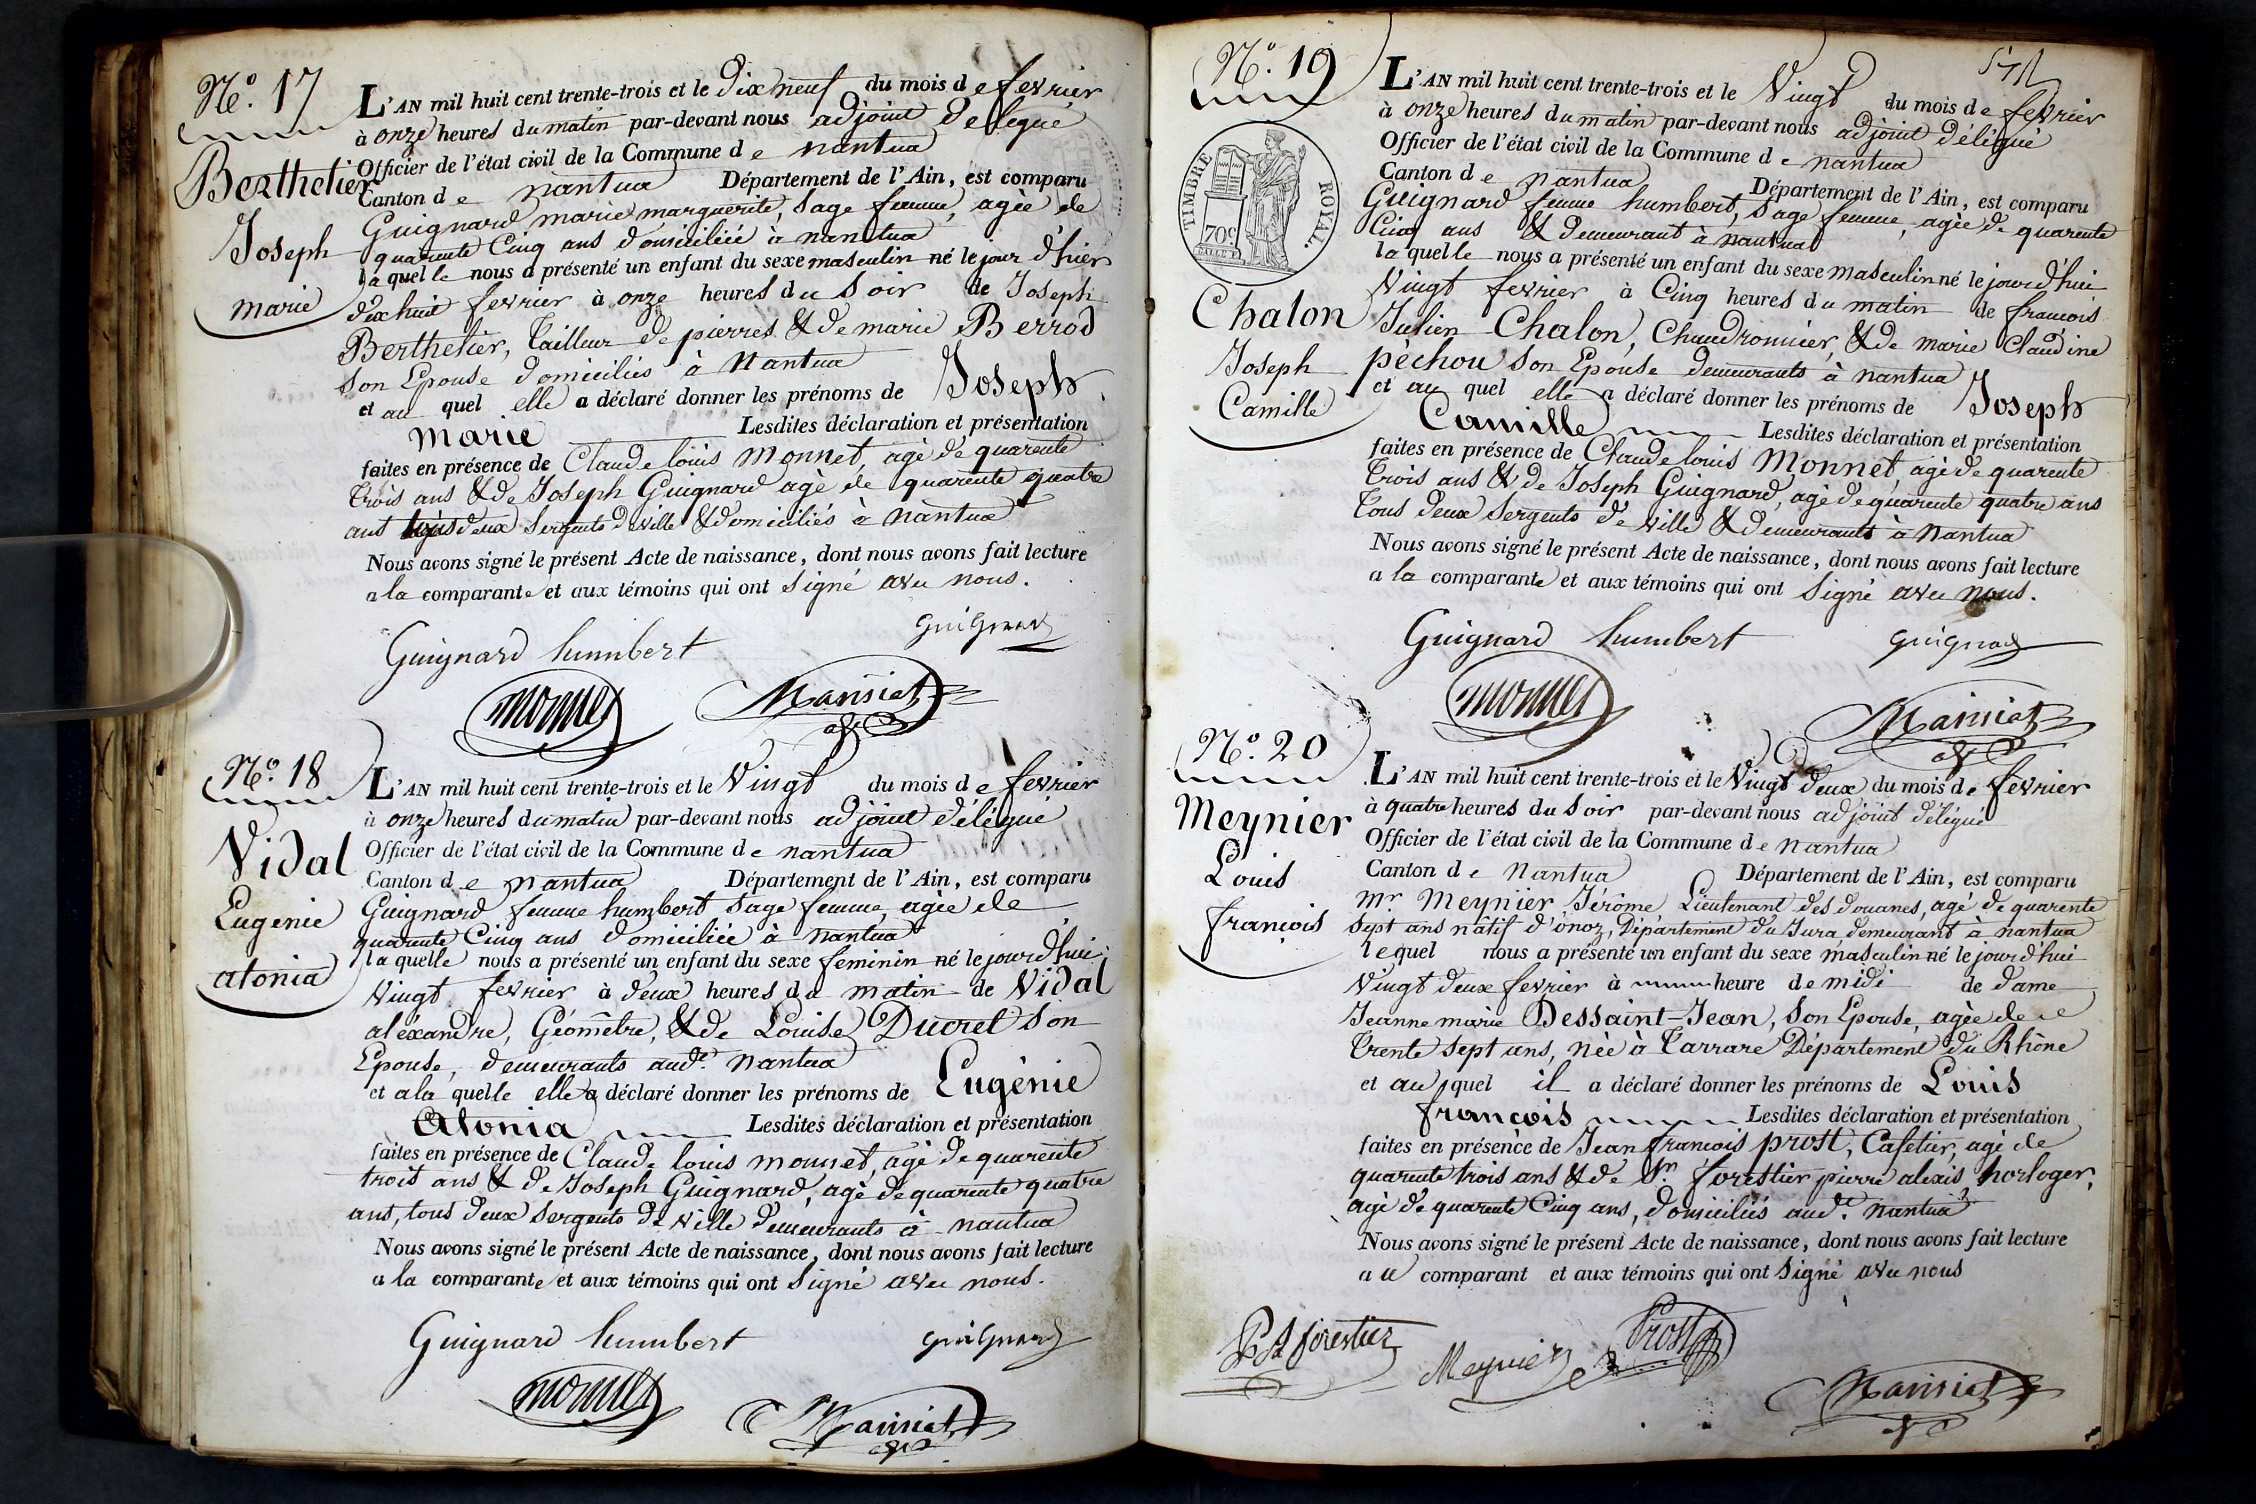 N.º 17
Berthelier
Joseph
marie
L'AN mil huit cent trente-trois et le dix neuf du mois de fevrier
à onze heures du matin par-devant nous adjoint délégué
Officier de l'état civil de la Commune de nantua
Canton de nantua Département de l'Ain, est comparu
Guignard marie marguerite, sage femme, agée de
quarente Cinq ans domiciliée à nantua
laquelle nous a présenté un enfant du sexe masculin né le jour d'hier
dix huit fevrier à onze heures du soir de Joseph
Berthelier, tailleur de pierres & de marie Berrod
son Epouse domiciliés à Nantua
et au quel elle a déclaré donner les prénoms de Joseph
marie Lesdites déclaration et présentation
faites en présence de Claude louis monnet, agé de quarente
trois ans & de Joseph Guignard agé de quarente quatre
ans tous deux sergents de ville & domiciliés à nantua
Nous avons signé le présent Acte de naissance, dont nous avons fait lecture
a la comparante et aux témoins qui ont signé avec nous.
Guignard humbert
guignard
monnet
Mansiat
N.º 18
Vidal
Eugenie
atonia
L'AN mil huit cent trente-trois et le Vingt du mois de fevrier
à onze heures du matin par-devant nous adjoint délégué
Officier de l'état civil de la Commune de nantua
Canton de nantua Département de l'Ain, est comparu
Guignard femme humbert sage femme, agée de
quarente Cinq ans domiciliée à nantua
laquelle nous a présenté un enfant du sexe feminin né le jourd'hui
Vingt fevrier à deux heures du matin de Vidal
aléxandre, Géomêtre, & de Louise Ducret son
Epouse, demeurants aud.t nantua
et a la quelle elle a déclaré donner les prénoms de Eugènie
Atonia Lesdites déclaration et présentation
faites en présence de Claude louis monnet, agé de quarente
trois ans & de Joseph Guignard, agé de quarente quatre
ans, tous deux sergents de ville demeurants à nantua
Nous avons signé le présent Acte de naissance, dont nous avons fait lecture
a la comparante et aux témoins qui ont signé avec nous.
Guignard humbert
guignard
monnet
Mansiat
N.º 19
TIMBRE ROYAL.
70c
Chalon
Joseph
Camille
L'AN mil huit cent trente-trois et le Vingt du mois de fevrier
à onze heures du matin par-devant nous adjoint délégué
Officier de l'état civil de la Commune de nantua
Canton de nantua Département de l'Ain, est comparu
Guignard femme humbert, sage femme, agée de quarente
Cinq ans & demeurant à nantua
laquelle nous a présenté un enfant du sexe masculin né le jourd'hui
Vingt fevrier à Cinq heures du matin de francois
Julien Chalon, Chaudronnier, & de marie Claudine
péchou son Epouse demeurants à nantua
et au quel elle a déclaré donner les prénoms de Joseph
Camille Lesdites déclaration et présentation
faites en présence de Claude louis Monnet agé de quarente
trois ans & de Joseph Guignard, agé de quarente quatre ans
tous deux sergents de ville & demeurants à nantua
Nous avons signé le présent Acte de naissance, dont nous avons fait lecture
a la comparante et aux témoins qui ont signé avec nous.
Guignard humbert
guignard
monnet
Mansiat
N.º 20
Meynier
Louis
françois
L'AN mil huit cent trente-trois et le Vingt deux du mois de fevrier
à quatre heures du soir par-devant nous adjoint délégué
Officier de l'état civil de la Commune de nantua
Canton de Nantua Département de l'Ain, est comparu
mr Meynier Jérôme Lieutenant des douanes, agé de quarente
sept ans natif d'onoz, Département du Jura demeurant à nantua
lequel nous a présenté un enfant du sexe masculin né le jourd'hui
Vingt deux fevrier à heure de midi de dame
Jeanne marie Dessaint-Jean, son Epouse, agée de
trente sept ans, née à Tarrare Département du Rhône
et au quel il a déclaré donner les prénoms de Louis
françois Lesdites déclaration et présentation
faites en présence de Jean francois prost, Cafetier, agé de
quarente trois ans & de Sr. forestier pierre alexis horloger,
agé de quarente Cinq ans, domiciliés aud.t nantua
Nous avons signé le présent Acte de naissance, dont nous avons fait lecture
au comparant et aux témoins qui ont signé avec nous
forestier
Meynier
Prost
Mansiat